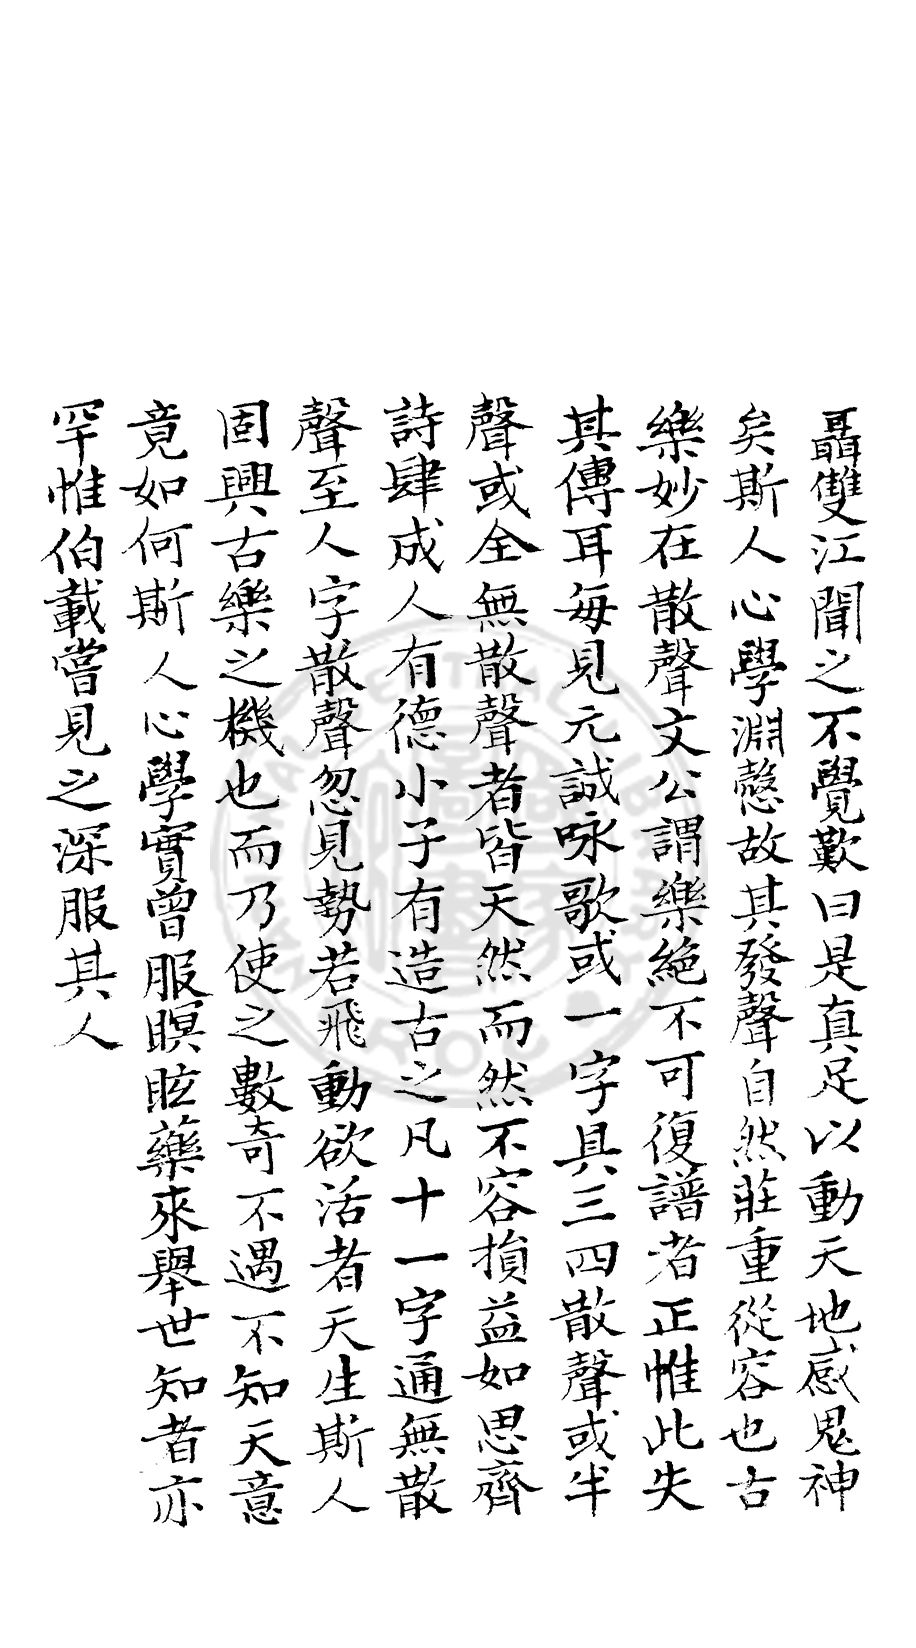 聶雙江聞之不覺歎曰是真足以動天地感鬼神
矣斯人心學淵慤故其發聲自然莊重從容也古
樂妙在散聲文公謂樂絕不可復譜者正惟此失
其傳耳每見元誠咏歌或一字具三四散聲或半
聲或全無散聲者皆天然而然不容損益如思齊
詩肆成人有德小子有造古之凡十一字通無散
聲至人字散聲忽見勢若飛動欲活者天生斯人
固興古樂之機也而乃使之數奇不遇不知天意
竟如何斯人心學實曾服瞑眩藥來舉世知者亦
罕惟伯載嘗見之深服其人